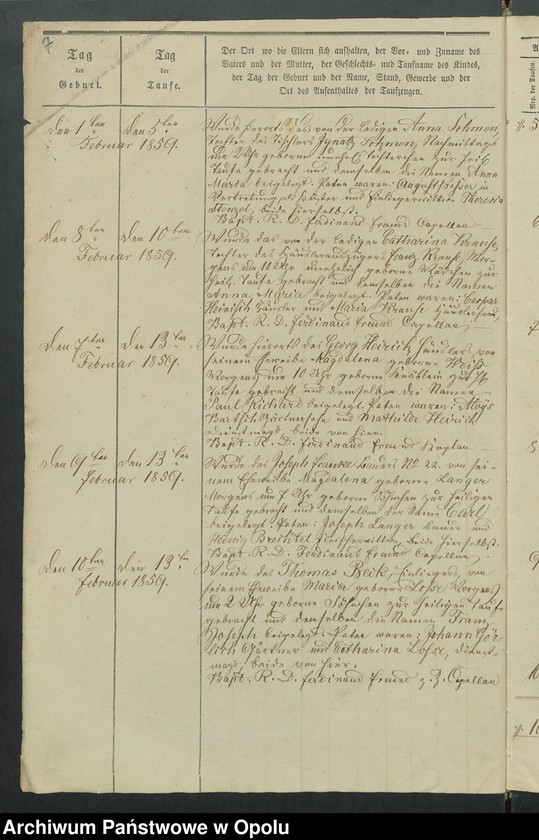 7
Tag
der
Geburt.
Tag
der
Taufe.
Der Ort wo die Eltern sich aufhalten, der Vor- und Zuname des
Vaters und der Mutter, der Geschlechts- und Taufname des Kindes,
der Tag der Geburt und der Name, Stand, Gewerbe und der
Ort des Aufenthaltes der Taufzeugen.
Den 1ten Februar 1859.
Den 5ten
Wurde hierorts das von der ledigen Anna
Tochter des Tischlers Ignatz Nachmittags
um 2 Uhr geborne Töchterchen zur heil.
Taufe gebracht und demselben die Namen Anna
Maria beigelegt. Paten waren: August in
Vertretung und Theresia
beide hierselbst.
Bapt. R. D. Ferdinand Freund Capellan
Den 8ten Februar 1859.
Den 10ten
Wurde das von der ledigen Catharina Krause,
Tochter des Franz Krause, Mor-
gens um 10 Uhr unehelich geborne Mädchen zur
heil. Taufe gebracht und demselben die Namen
Anna Maria beigelegt. Paten waren: Caspar
Heinisch Häusler und Maria Krause Häuslerfrau
Bapt. R. D. Ferdinand Freund Capellan
Den 7ten Februar 1859.
Den 13ten
Wurde hierorts des Georg Häuslers von
seinem Eheweibe Magdalena geborne
Morgens um 10 Uhr geborne Knäblein zur
Taufe gebracht und demselben die Namen
Paul Richard beigelegt. Paten waren: Aloys
Bartsch und Mathilde
Dienstmagd, beide von hier.
Bapt. R. D. Ferdinand Freund Kaplan
Den 9ten Februar 1859.
Den 13ten
Wurde des Joseph Bauers No 22. von sei-
nem Eheweibe Magdalena geborne Langer
Morgens um 7 Uhr geborne Söhnchen zur heiligen
Taufe gebracht und demselben der Name Carl
beigelegt. Paten: Joseph Langer Bauer und
Hedwig beide hierselbst.
Bapt. R. D. Ferdinand Freund Capellan
Den 10ten Februar 1859.
Den 13ten
Wurde des Thomas Beik, Einliegers, von
seinem Eheweibe Maria geborne Morgens
um 2 Uhr geborne Söhnchen zur heiligen Taufe
gebracht und demselben die Namen Franz
Joseph beigelegt. Paten waren: Johann Gör-
lich Gärtner und Catharina Dienst-
magd, beide von hier.
Bapt. R. D. Ferdinand Freund z. Z. Capellan
Archiwum Państwowe w Opolu